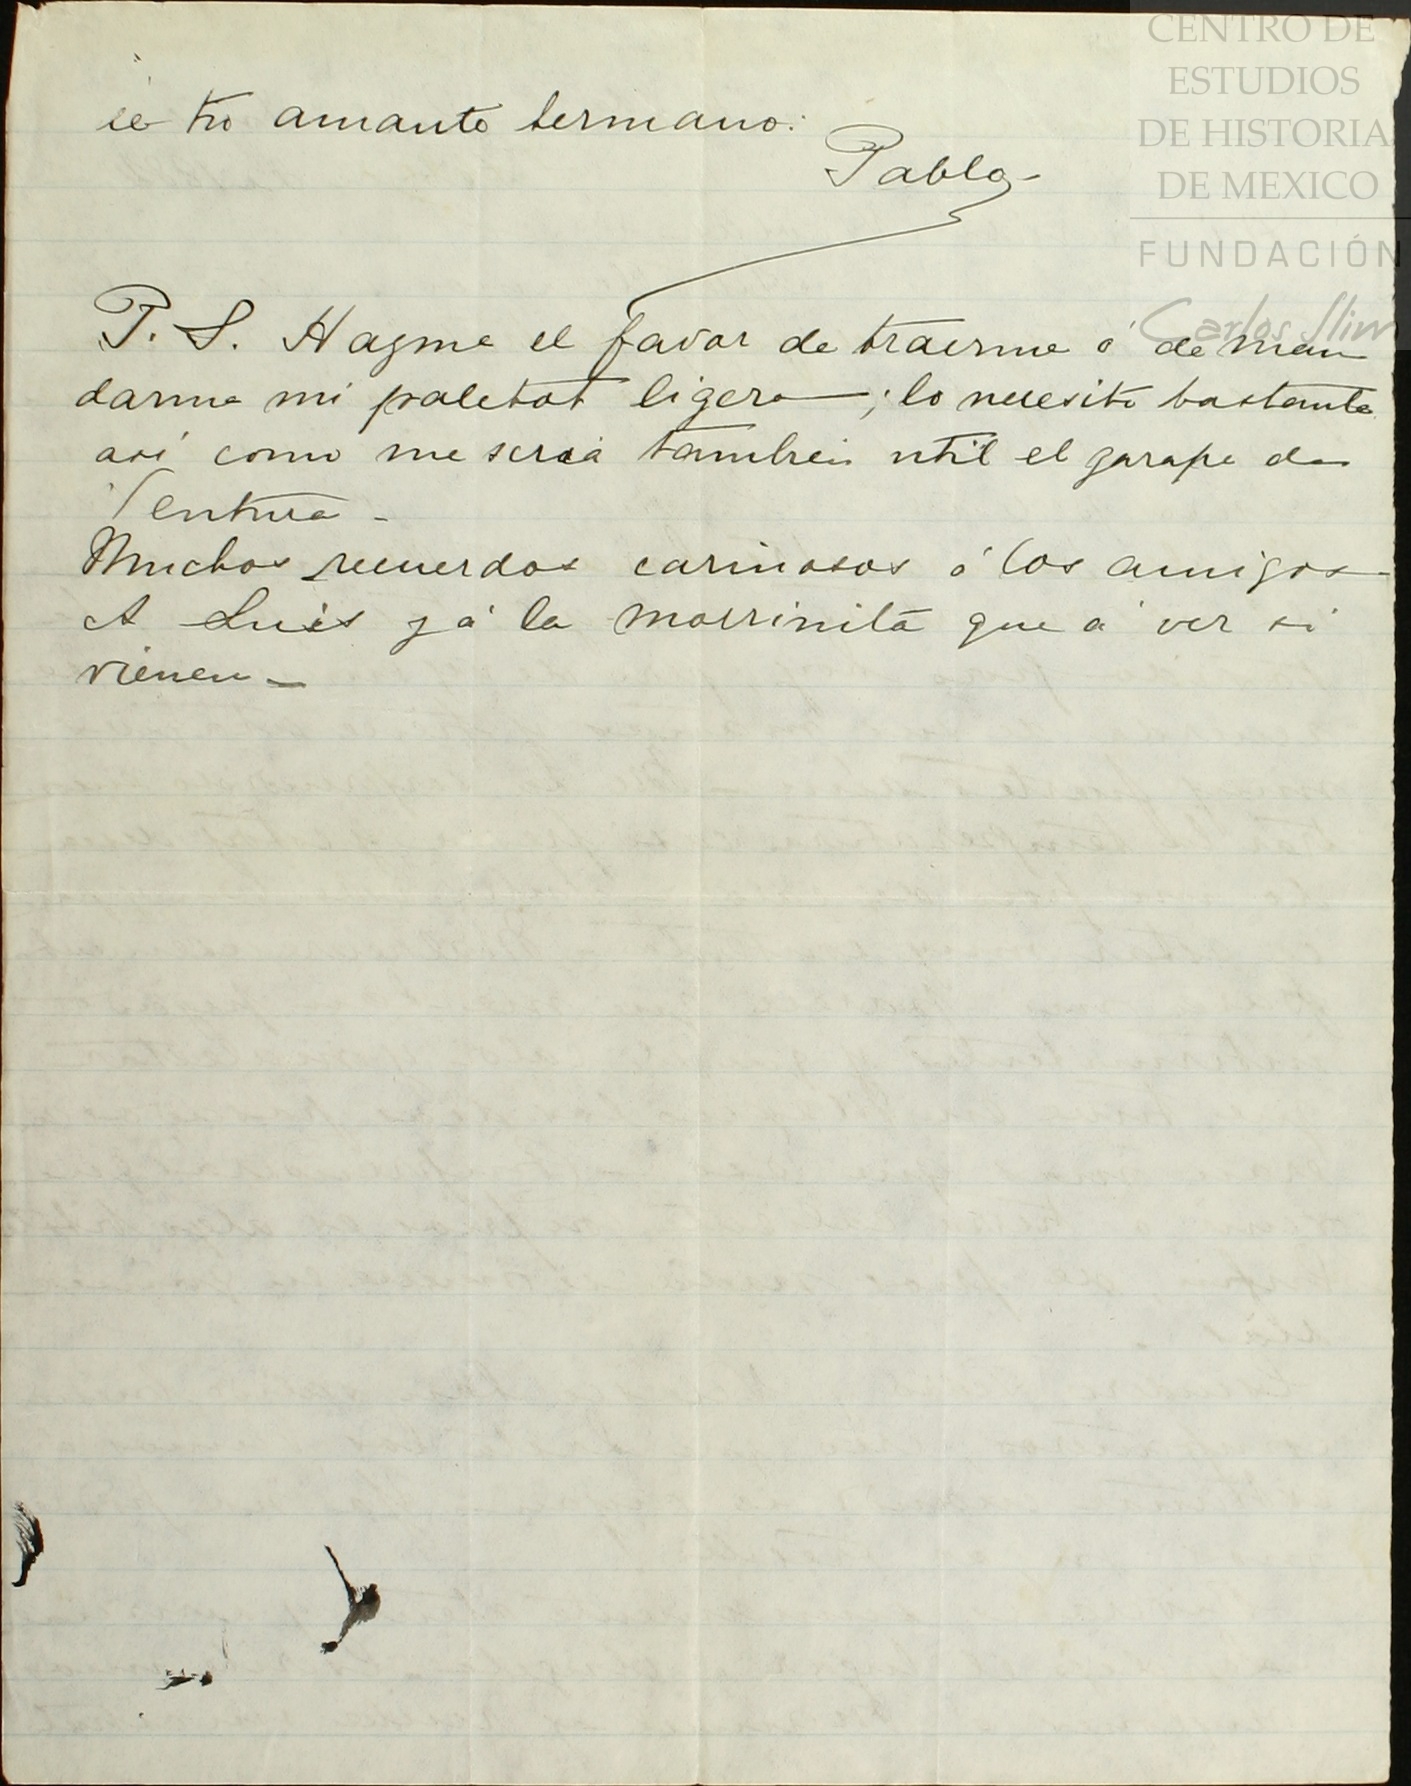 CENTRO DE
ESTUDIOS
DE HISTORIA
DE MEXICO
FUNDACIÓN
Carlos Slim
tu amante hermano:
Pablo
P. S. Hagme el favor de traerme ó de man
darme mi paletot ligero; lo necesito bastante
así como me sería también util el zarape de
Ventura -
Muchos recuerdos cariñosos á los amigos
A Luis y á la que á ver si
vienen